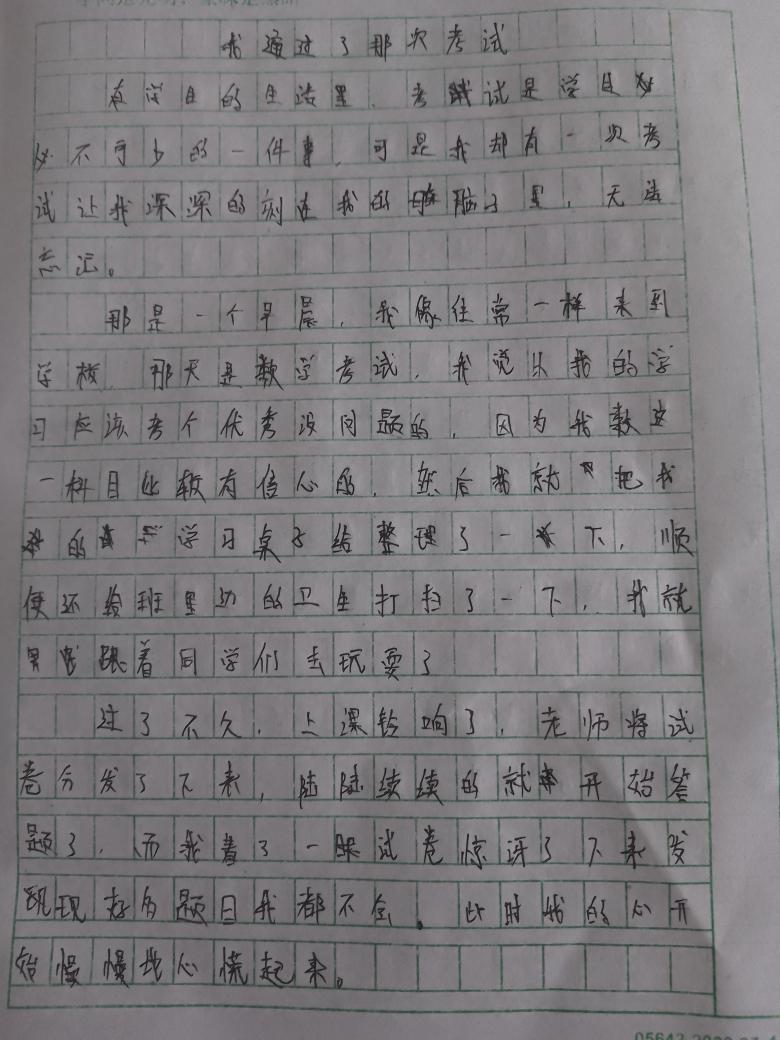 我通过了那次考试
在学生的生活里，考试是学生必
必不可少的一件事，可是我却有一次考
试让我深深的刻在我的脑子里，无法
忘记。
那是一个早晨，我像往常一样来到
学校，那天是数学考试，我觉以我的学
习应该考个优秀没问题的，因为我数这
一科目比较有信心的，然后我就把我
的学习桌子给整理了一下，顺
便还给班里边的卫生打扫了一下，我就
跟着同学们去玩耍了
过了不久，上课铃响了，老师将试
卷分发了下来，陆陆续续的就开始答
题了，而我看了一眼试卷惊讶了下来发
现现好多题目我都不会。此时我的心开
始慢慢地心慌起来。